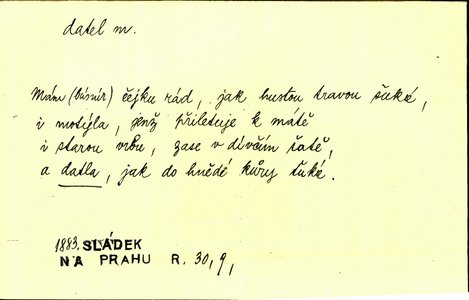 datel m.
Mám (básník) čejku rád, jak hustou travou šuká,
i motýla, jenž přiletuje k mátě
i starou vrbu, zase v dívčím šatě,
a datla, jak do hnědé kůry ťuká.
1883. SLÁDEK
NA PRAHU R. 30, 9,